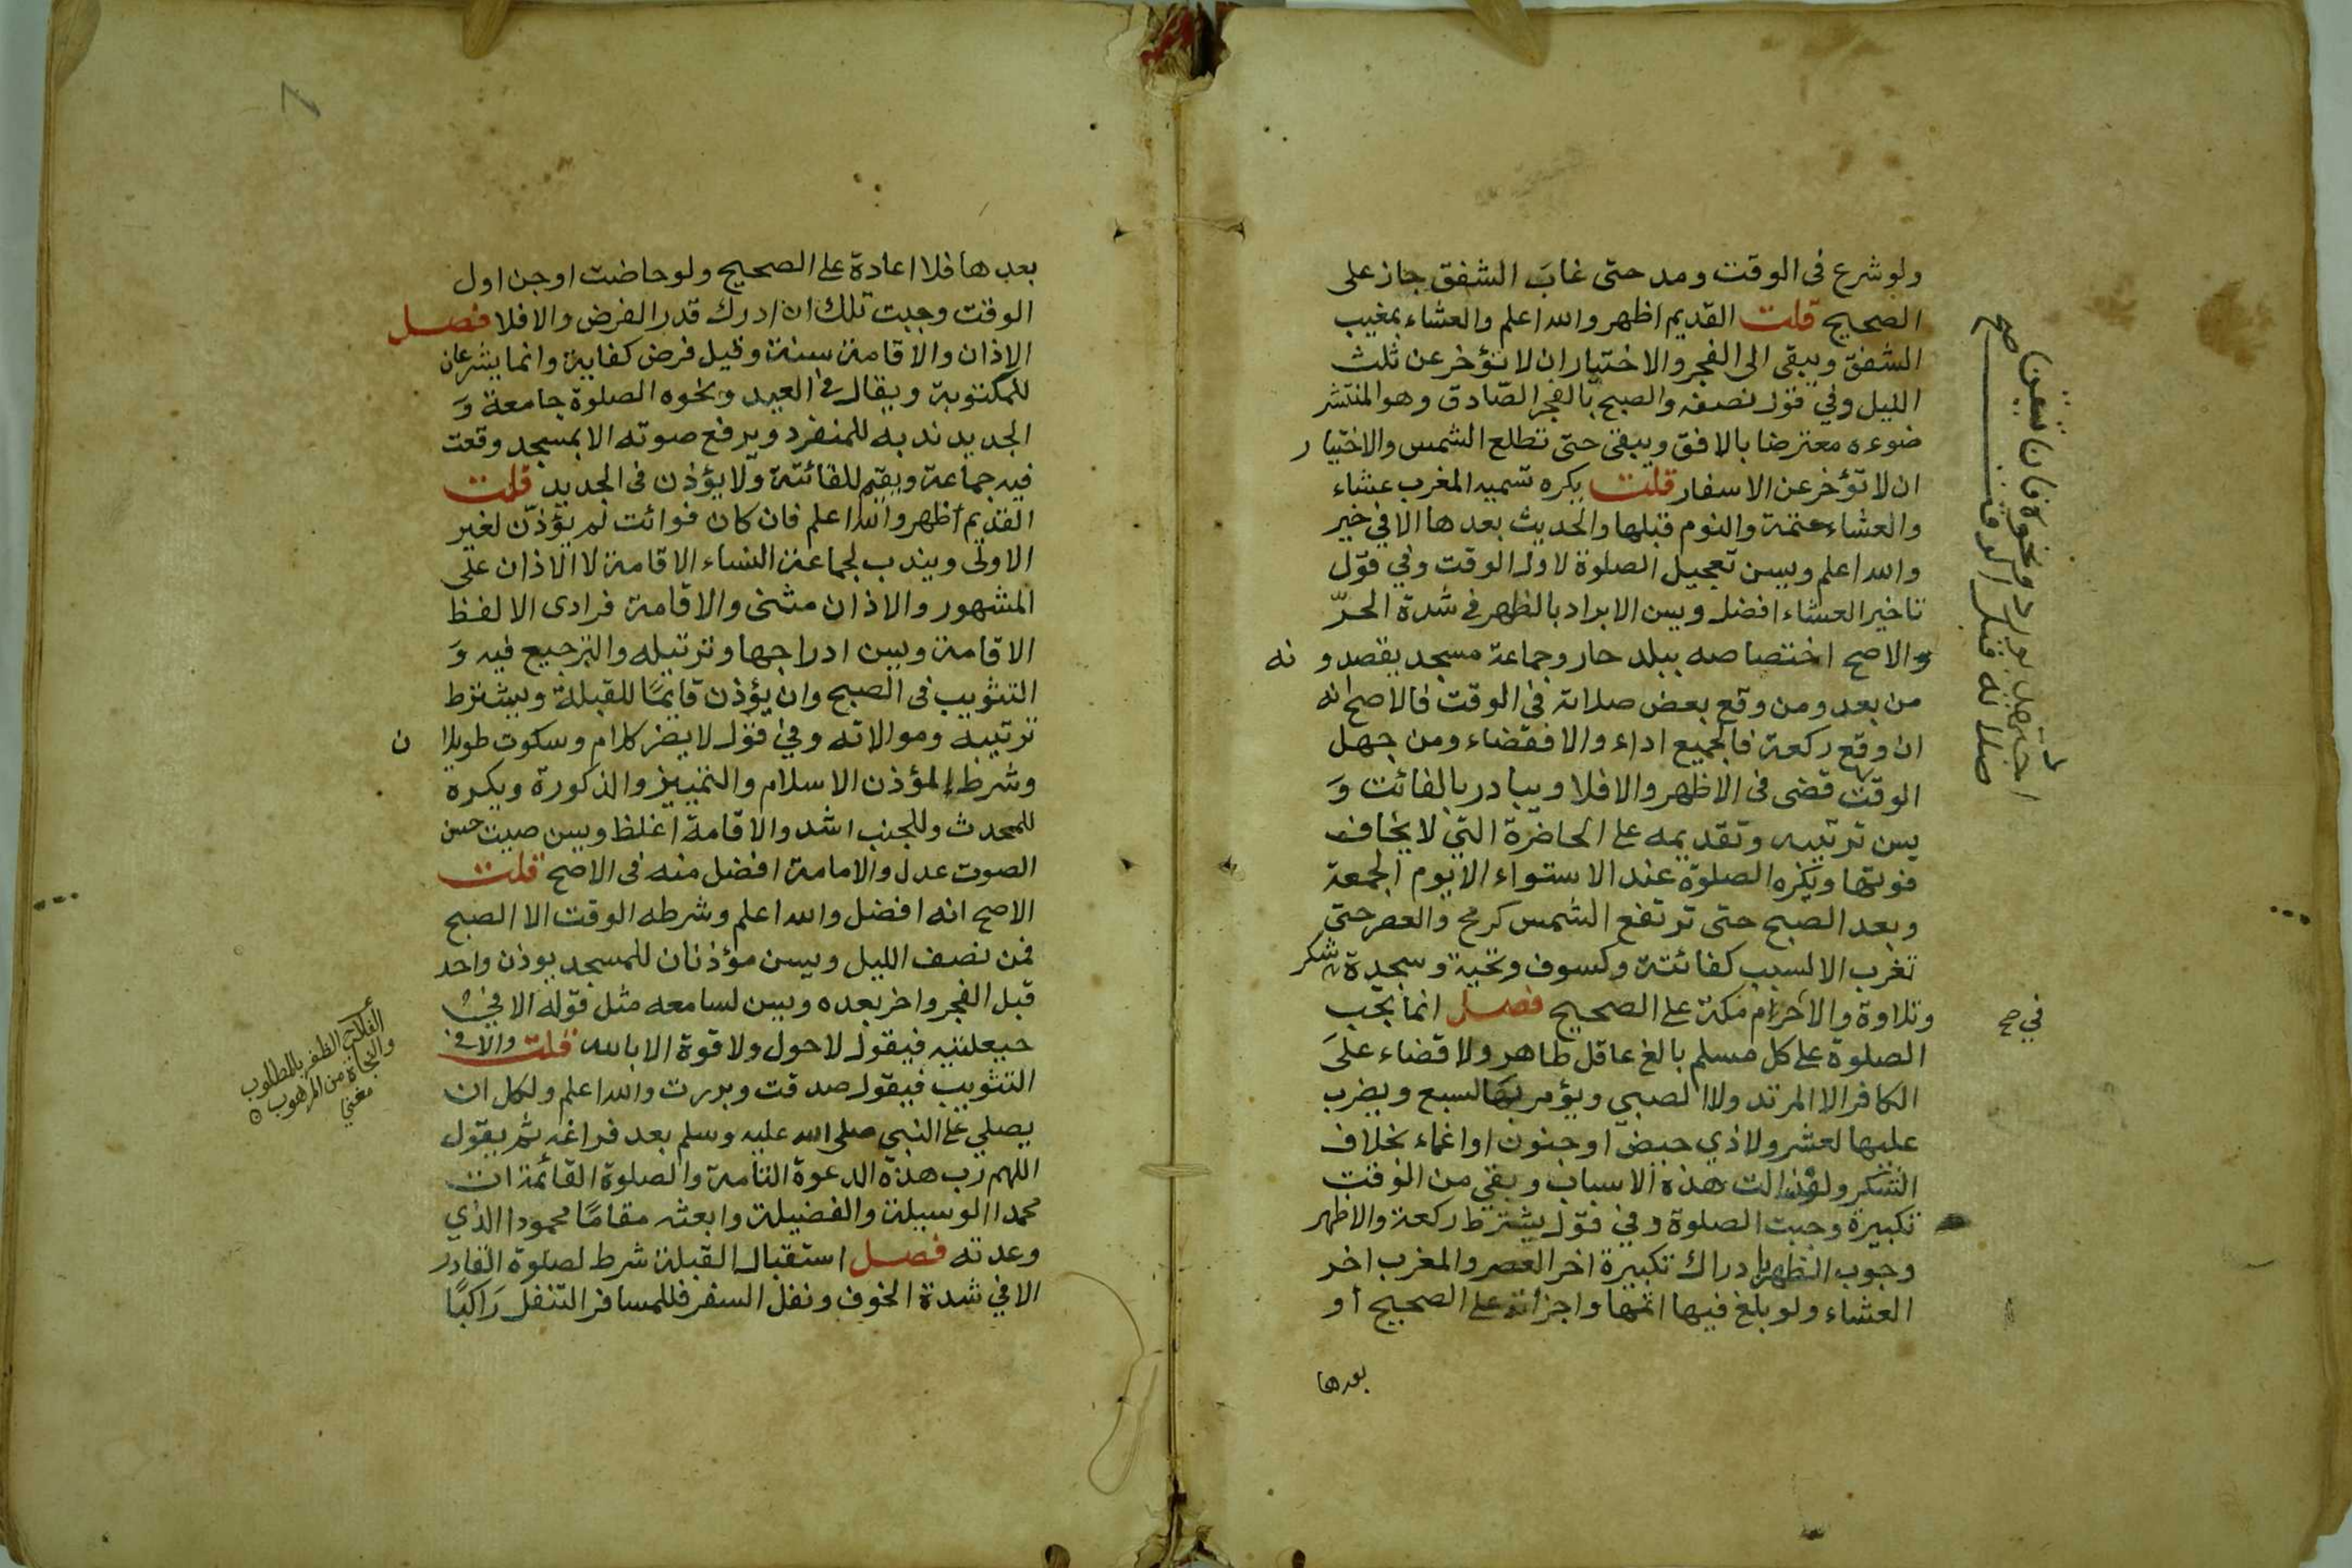 ولو شرع فى الوقت ومد حتى غاب الشفق جاز على
الصحيح قلت القديم اظهر والله اعلم والعشاء بمغيب
الشفق ويبقى الى الفجر والاختيار ان لا تؤخر عن ثلث
الليل وفي قول نصفه والصبح بالفجر الصّادق وهو المنتشر
ضوءه معترضا بالافق ويبقى حتى تطلع الشمس والاختيار
ان لا تؤخر عن الاسفار قلت يكره تسميه المغرب عشاء
والعشاء عتمة والنوم قبلها والحديث بعدها الا في خير
والله اعلم ويسن تعجيل الصلوة لاول الوقت وفي قول
تاخير العشاء افضل ويسن الابراد بالظهر في شدة الحرّ
والاصح اختصاصه ببلد حار وجماعة مسجد يقصدو نه
من بعد ومن وقع بعض صلاته في الوقت فالاصح انه
ان وقع ركعة فالجميع اداء والا فقضاء ومن جهل
الوقت قضى فى الاظهر والا فلا ويبادر بالفائت وَ
يسن ترتيبه وتقديمه على الحاضرة التي لا يخاف
فوتها ويكره الصلوة عند الاستواء الا يوم الجمعة
وبعد الصبح حتى ترتفع الشمس كرمح والعصر حتى
تغرب الا لسبب كفائتة وكسوف وتحية وسجدة شكر
وتلاوة والا حرم مكة على الصحيح فصل انما تجب
في صح
الصلوة على كل مسلم بالغ عاقل طاهر ولا قضاء على
الكافر الا المرتد ولا الصبي ويؤمر بها لسبع ويضرب
عليها لعشر ولا ذي حيض او جنون او اغماء بخلاف
السكر ولو زالت هذه الاسباب وبقي من الوقت
تكبيرة وجبت الصلوة وفي قول يشترط ركعة والاظهر
وجوب الظهر بادراك تكبيرة اخر العصر والمغرب اخر
العشاء ولو بلغ فيها اتمها واجزأته على الصحيح أو
بعدها
بعدها فلا اعادة على الصحيح ولو حاضت او جن اول
الوقت وجبت تلك ان ادرك قدر الفرض والا فلا فصل
الاذان والاقامة سنة وقيل فرض كفاية وانما يشرعان
للمكتوبة ويقال في العيد ونحوه الصلوة جامعة وَ
الجديد ندبه للمنفرد ويرفع صوته الا بمسجد وقعت
فيه جماعة ويقيم للفائتة ولا يؤذن فى الجديد قلت
القديم أظهر والله اعلم فان كان فوائت لم يؤذن لغير
الاولى ويندب لجماعة النساء الاقامة لا الاذان على
المشهور والاذان مثنى والاقامة فرادى الا لفظ
الاقامة ويسن ادراجها وترتيله والترجيع فيه وَ
التثويب فى الصبح وان يؤذن قايمًا للقبلة ويشترط
ترتيبه وموالاته وفي قول لا يضر كلام وسكوت طويلا ن
وشرط المؤذن الاسلام والتمييز والذكورة ويكره
للمحدث وللجنب اشد والاقامة اغلظ ويسن صيت حسن
الصوت عدل والامامة افضل منه فى الاصح قلت
الاصح انه افضل والله اعلم وشرطه الوقت الا الصبح
فمن نصف الليل ويسن مؤذنان للمسجد يوذن واحد
قبل الفجر واخر بعده ويسن لسامعه مثل قوله الا في
حيعلتيه فيقول لا حول ولا قوة الا بالله قلت والا في
التثويب فيقول صدقت وبررت والله اعلم ولكل ان
يصلي على النبي صلى الله عليه وسلم بعد فراغه ثم يقول
اللهم رب هذه الدعوة التامة والصلوة القائمة ات
محمدا الوسيلة والفضيلة وابعثه مقامًا محمودا الذي
وعدته فصل استقبال القبلة شرط لصلوة القادر
الا في شدة الخوف ونفل السفر فللمسافر التنفل رَاكبًا
الظفر بالمطلوب
والنجاة من المرهوب
مغني